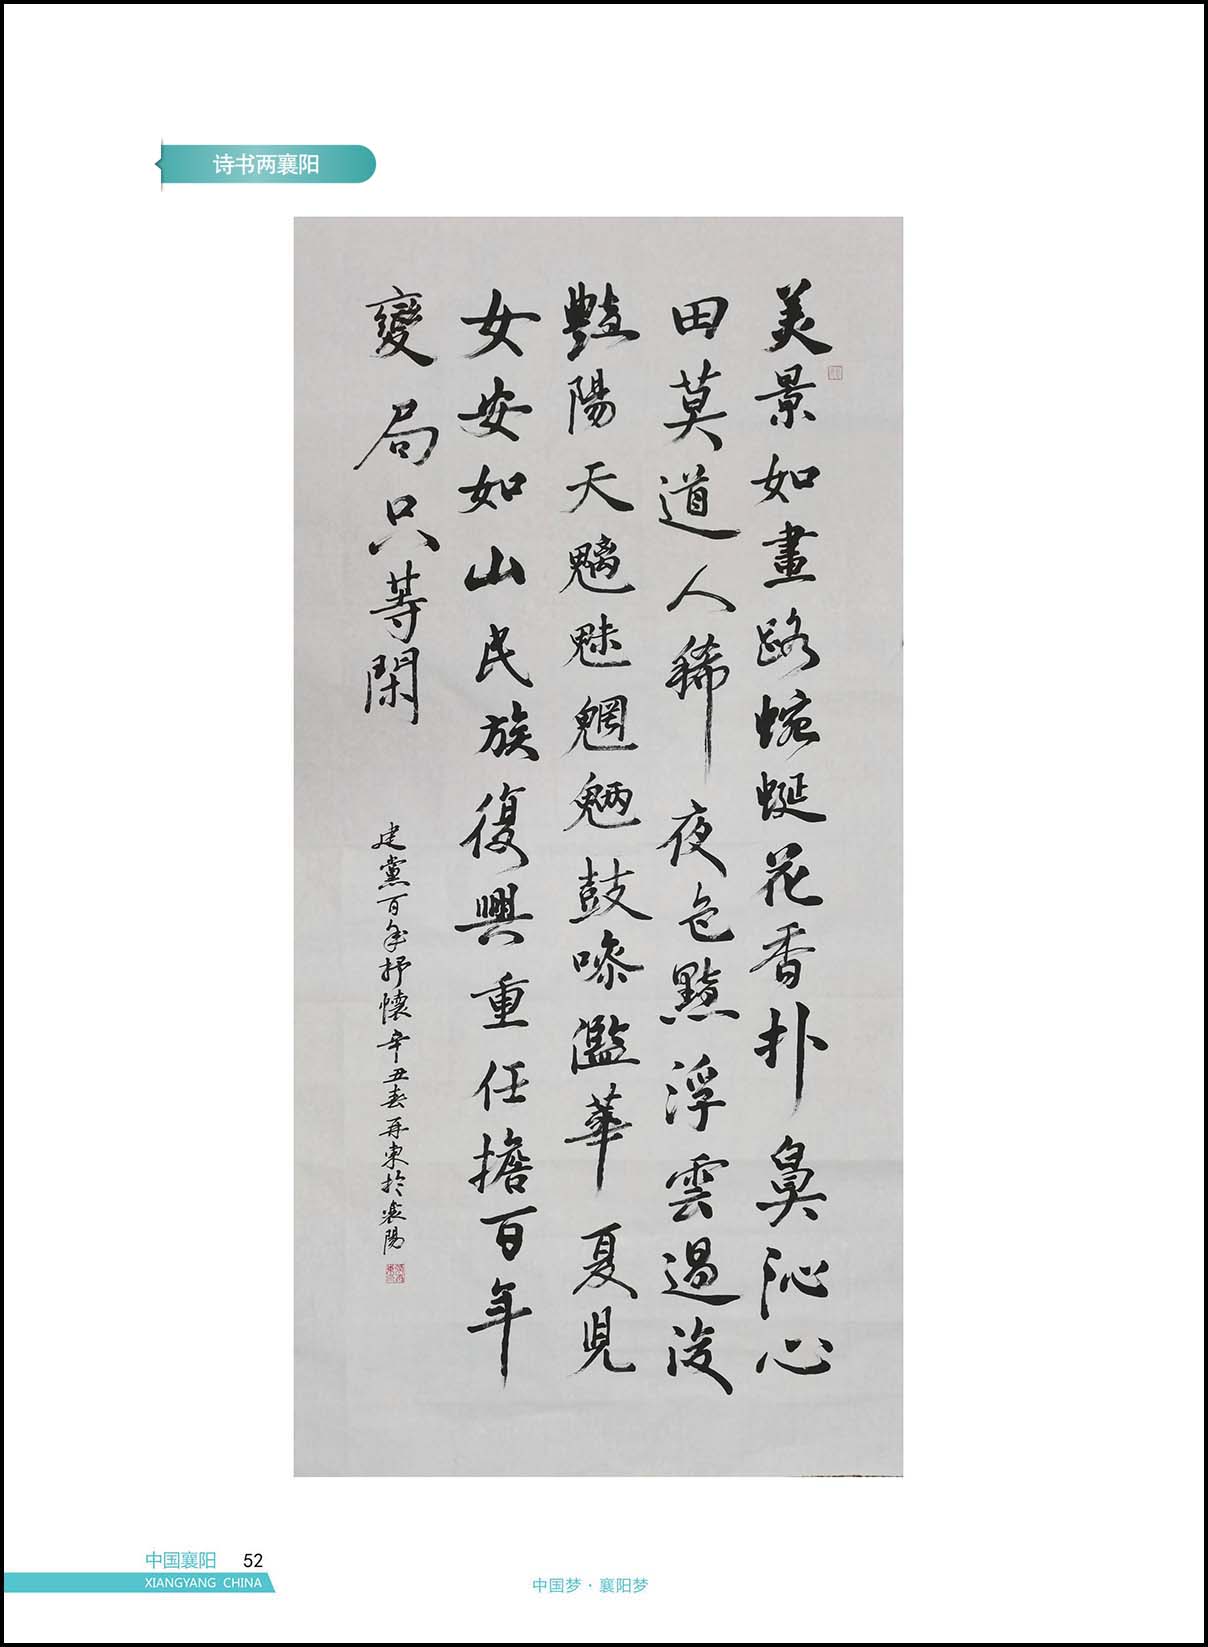 诗书两襄阳
美景如畫路蜿蜒花香扑鼻沁心
田莫道人稀夜色黯浮雲過後
豔陽天魑魅魍魎鼓噪濫華夏兒
女安如山民族復興重任擔百年
變局只等閑
建黨百年抒懷辛丑春再東於襄陽
中国襄阳 52
XIANGYANG CHINA
中国梦·襄阳梦